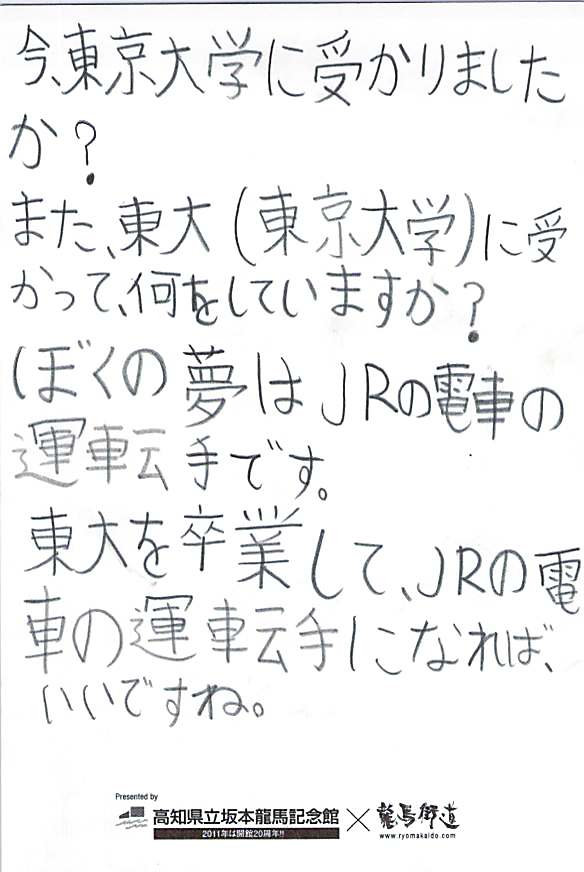 今、東京大学に受かりました
か？
また、東大(東京大学)に受
かって、何をしていますか？
ぼくの夢はJRの電車の
運転手です。
東大を卒業して、JRの電
車の運転手になれば、
いいですね。
Presented by
高知県立坂本龍馬記念館×龍馬街道
2011年は開館20周年!!
www.ryomakaido.com